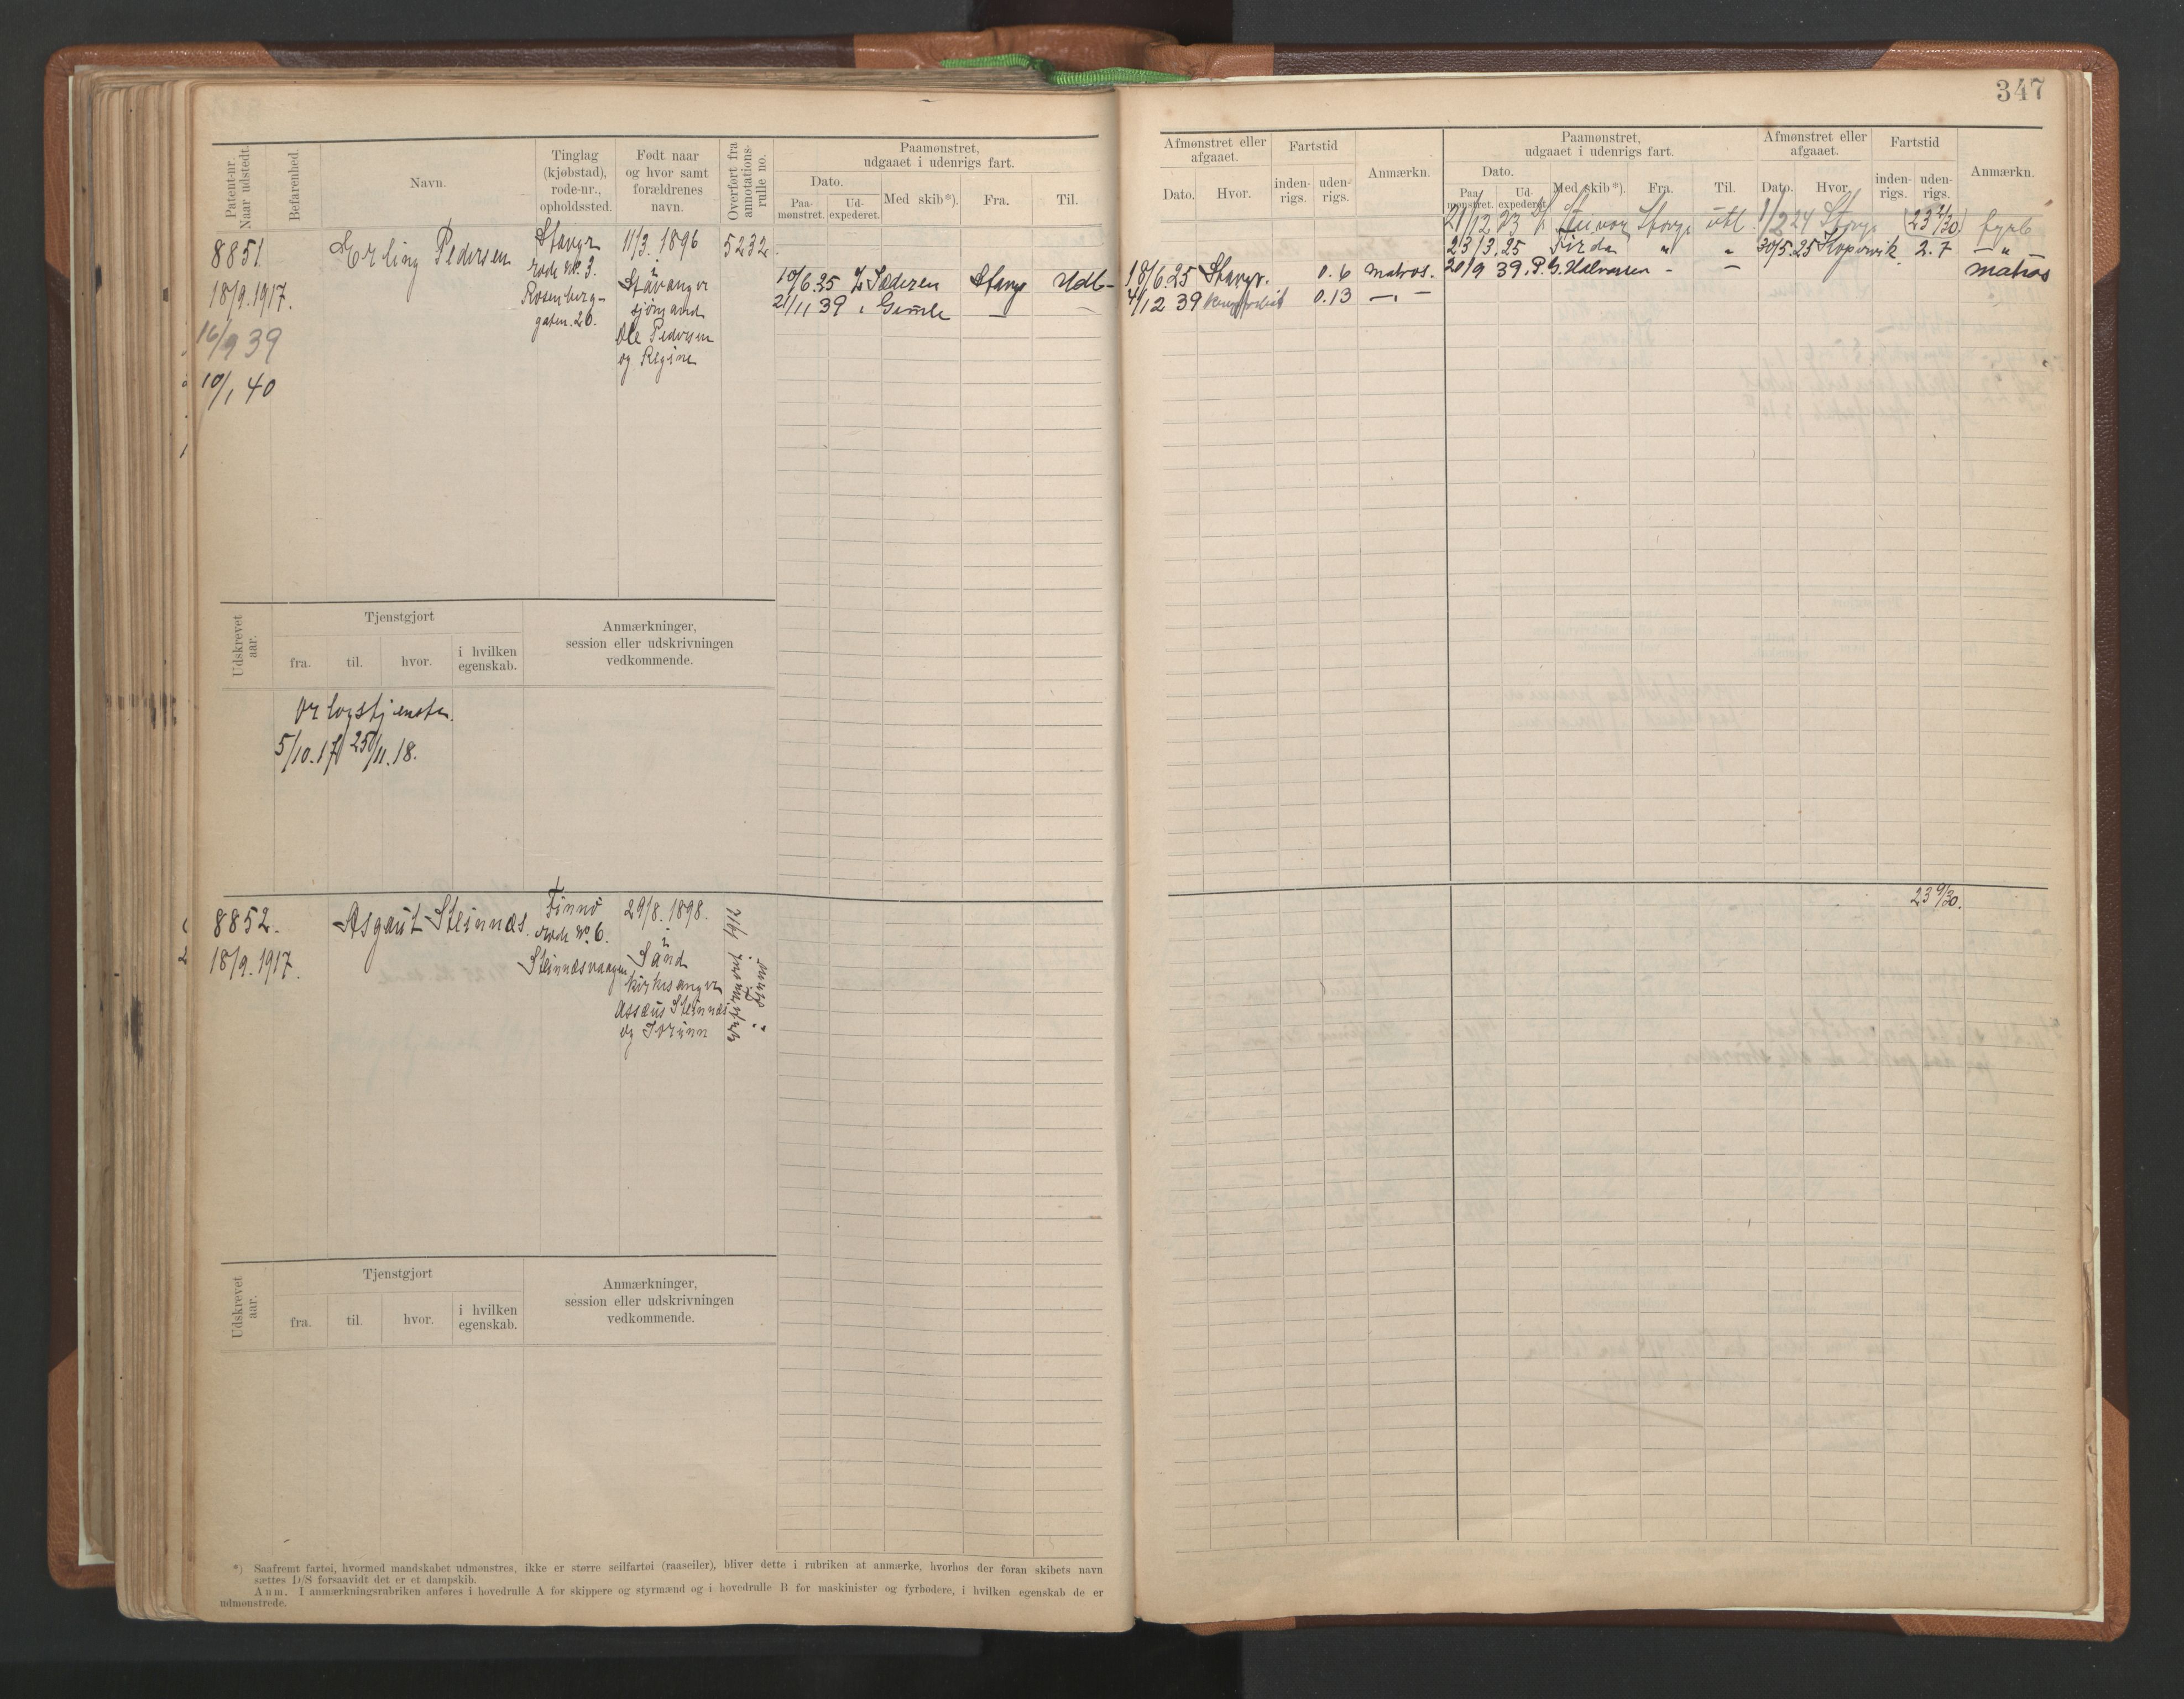 347
Patent-nr.
Naar udstedt.
Befarenhed.
Navn.
Tinglag
(kjøbstad),
rode-nr.,
opholdssted.
Født naar
og hvor samt
forældrenes
navn.
Overført fra
annotations-
rulle no.
Paamønstret,
udgaaet i udenrigs fart.
Dato.
Paa-
mønstret.
Ud-
expederet.
Med skib*).
Fra.
Til.
8851.
18/9.1917.
16/9 39
10/1 40
Erling Pedersen
Stavgr
rode No. 3.
Rosenberg-
gaten. 26.
11/3. 1896
i
Stavanger
sjömand
Ole Pedersen
og Regine
5232.
10/6.25 Jæderen Stavgr Udl-
21/11 39 " Gimle — —
Udskrevet
aar.
Tjenstgjort
fra.
til.
hvor.
i hvilken
egenskab.
Anmærkninger,
session eller udskrivningen
vedkommende.
Orlogstjeneste.
5/10.17 25/11.18.
8852.
18/9.1917.
Asgaut Steinnæs.
Finnö
rode No 6.
Steinnæsvaagen
29/8. 1898.
i
Sand
kirkesanger
Assæus Steinnæs
og Jorunn
1912
i Finnö
Udskrevet
aar.
Tjenstgjort
fra.
til.
hvor.
i hvilken
egenskab.
Anmærkninger,
session eller udskrivningen
vedkommende.
*) Saafremt fartøi, hvormed mandskabet udmønstres, ikke er større seilfartøi (raaseiler), bliver dette i rubriken at anmærke, hvorhos der foran skibets navn
sættes D/S forsaavidt det er et dampskib.
Anm. I anmærkningsrubriken anføres i hovedrulle A for skippere og styrmænd og i hovedrulle B for maskinister og fyrbødere, i hvilken egenskab de er
udmønstrede.
Afmønstret eller
afgaaet.
Dato.
Hvor.
Fartstid
inden-
rigs.
uden-
rigs.
Anmærkn.
Paamønstret,
udgaaet i udenrigs fart.
Dato.
Paa-
mønstret.
Ud-
expederet.
Med skib*).
Fra.
Til.
Afmønstret eller
afgaaet.
Dato.
Hvor.
Fartstid
inden-
rigs.
uden-
rigs.
Anmærkn.
18/6.25 Stavgr. 0.6 matros.
4/12 39 0.13 —"—
21/12 23 Stavgr utl. 1/2 24 Stavgr (23 2/30) fyrb
23/3.25 Firda " " 30/5.25 Kopervik 2.7 —"—
20/9 39 P.G. Halvorsen - — matros
23 9/30.